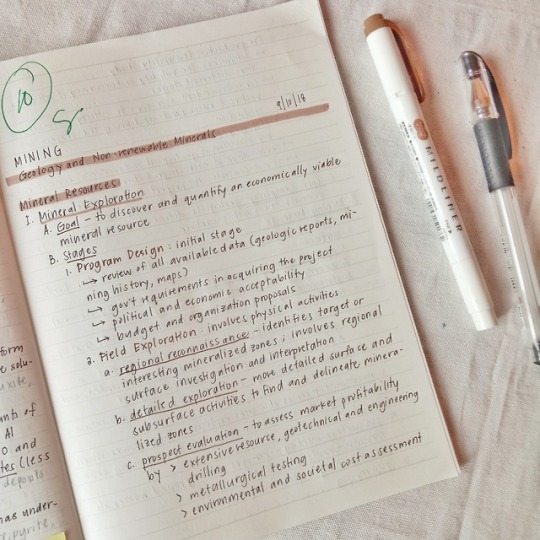 10
9/10/18
MINING
Geology and Non-renewable Minerals
Mineral Resources
I. Mineral Exploration
A. Goal - to discover and quantify an economically viable
mineral resource
B. Stages
1. Program Design : initial stage
↳ review of all available data (geologic reports, mi-
ning history, maps)
↳ gov't requirements in acquiring the project
↳ political and economic acceptability
↳ budget and organization proposals
2. Field Exploration : involves physical activities
a. regional reconnaissance - identifies target or
interesting mineralized zones ; involves regional
surface investigation and interpretation
b. detailed exploration - more detailed surface and
subsurface activities to find and delineate minera-
lized zones
c. prospect evaluation - to assess market profitability
by > extensive resource, geotechnical and engineering
drilling
> metallurgical testing
> environmental and societal cost assessment
form
e solu-
uxite,
nts of
Al
O and
tes (less
deposits
has under-
pyrite,
MILDLINER